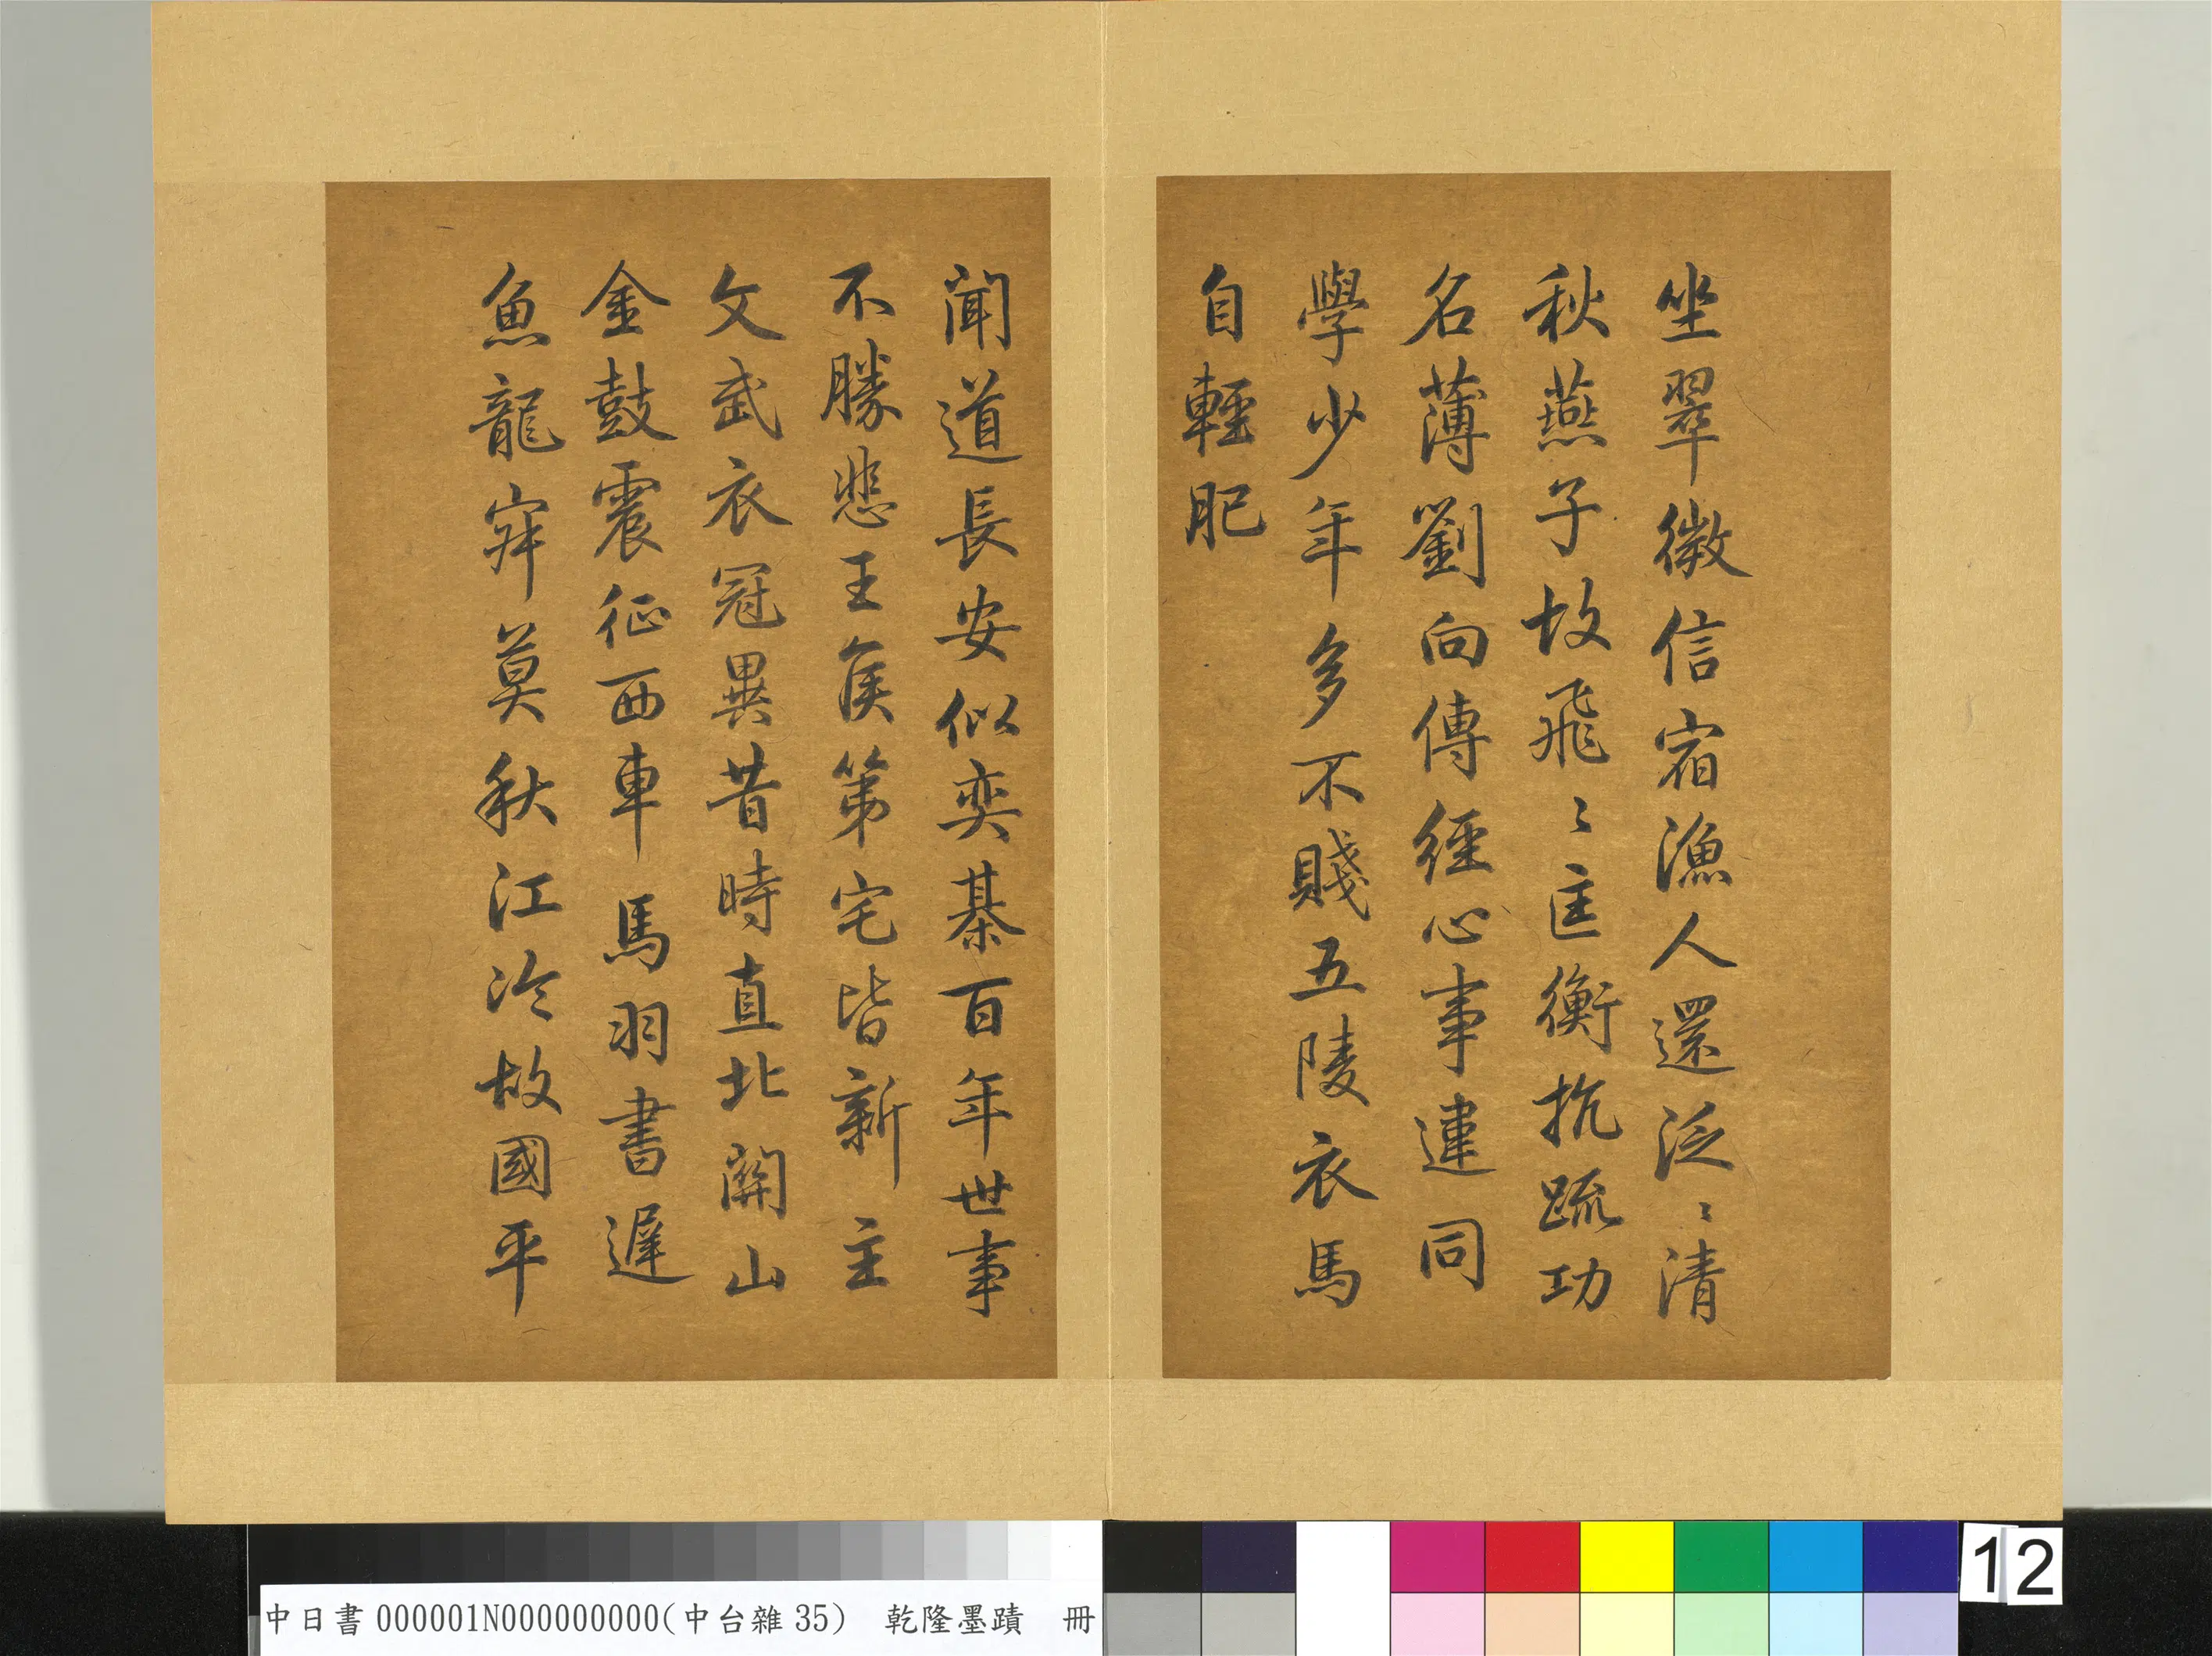 坐翠微信宿漁人還泛〻清
秋燕子故飛〻匡衡抗疏功
名薄劉向傳經心事違同
學少年多不賤五陵衣馬
自輕肥
聞道長安似奕棊百年世事
不勝悲王侯第宅皆新主
文武衣冠異昔時直北關山
金鼓震征西車馬羽書遲
魚龍寂莫秋江冷故國平
中日書 000001N000000000(中台雜 35) 乾隆墨蹟 冊
12